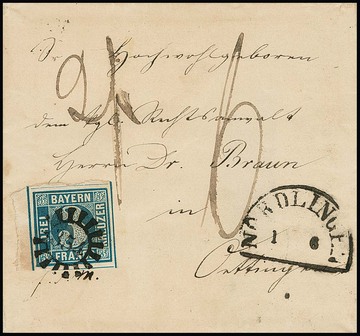 Sr Hochwohlgeboren
dem kgl. Rechtsanwalt
Herrn Dr. Braun
in
Oettingen
BAYERN
DREI
KREUZER
FRANCO
NÖRDLINGEN
1 6